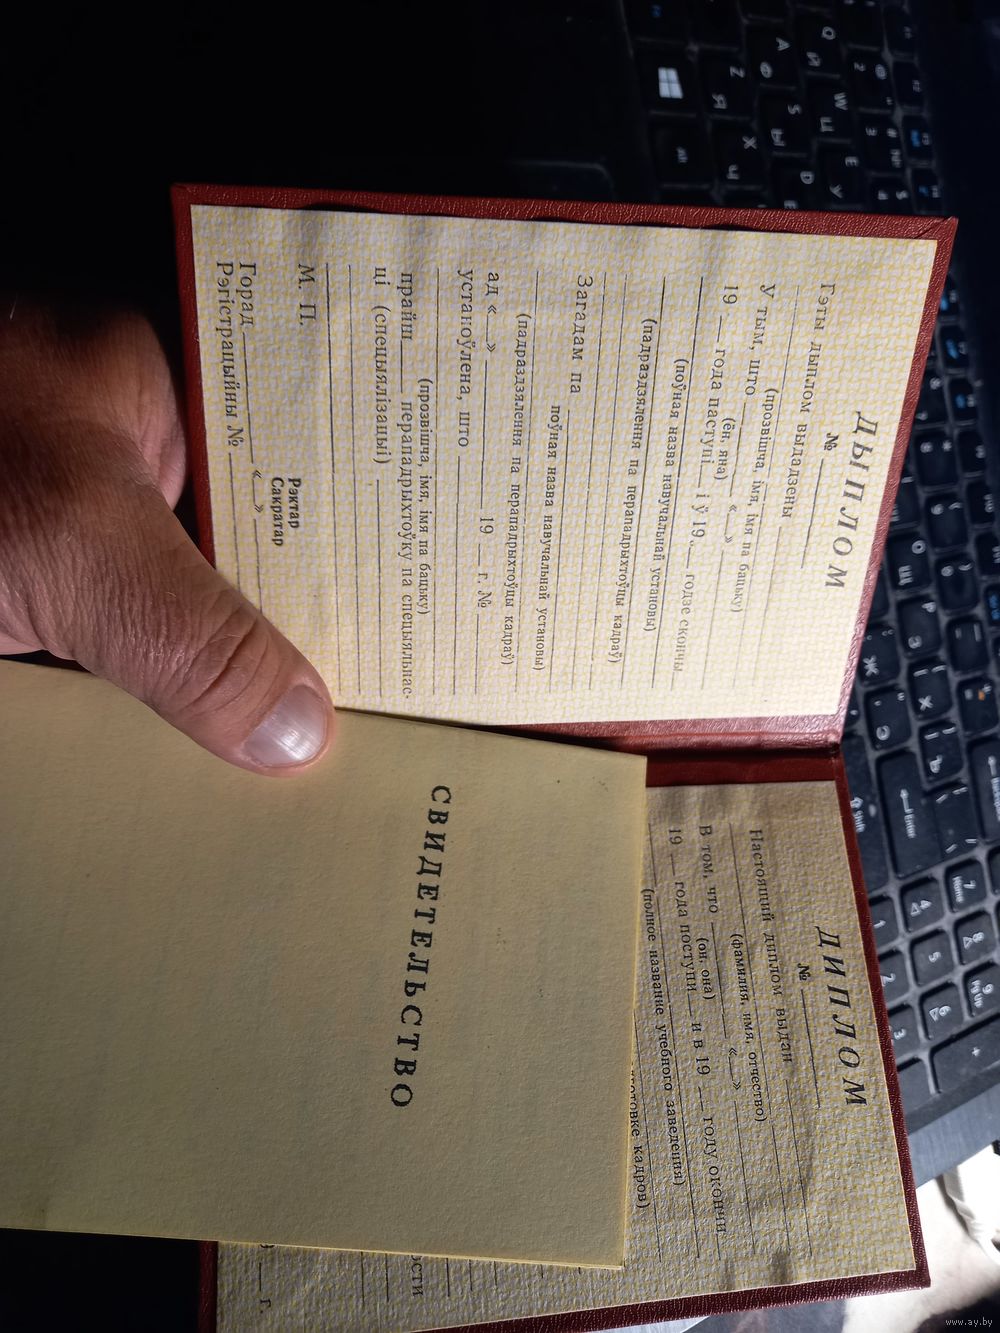 ДЫПЛОМ
№
Гэты дыплом выдадзены
(прозвішча, імя, імя па бацьку)
У тым, што «__»
(ён, яна)
19 __ года паступі__ і ў 19.__ годзе скончы
(поўная назва навучальнай установы)
(падраздзялення па перападрыхтоўцы кадраў)
Загадам па
поўная назва навучальнай установы)
(падраздзялення па перападрыхтоўцы кадраў)
ад «__» 19 __ г. №
устаноўлена, што
(прозвішча, імя, імя па бацьку)
прайш____ перападрыхтоўку па спецыяльнас-
ці (спецыялізацыі)
М. П.
Рэктар
Сакратар
Горад «__»
Рэгістрацыйны №
ДИПЛОМ
№
Настоящий диплом выдан
(фамилия, имя, отчество)
В том, что «__»
(он, она)
19 __ года поступи__ и в 19 __ году окончи
(полное название учебного заведения)
готовке кадров)
ости
г.
СВИДЕТЕЛЬСТВО
Enter
Shift
Home
Pg Up
www.ay.by